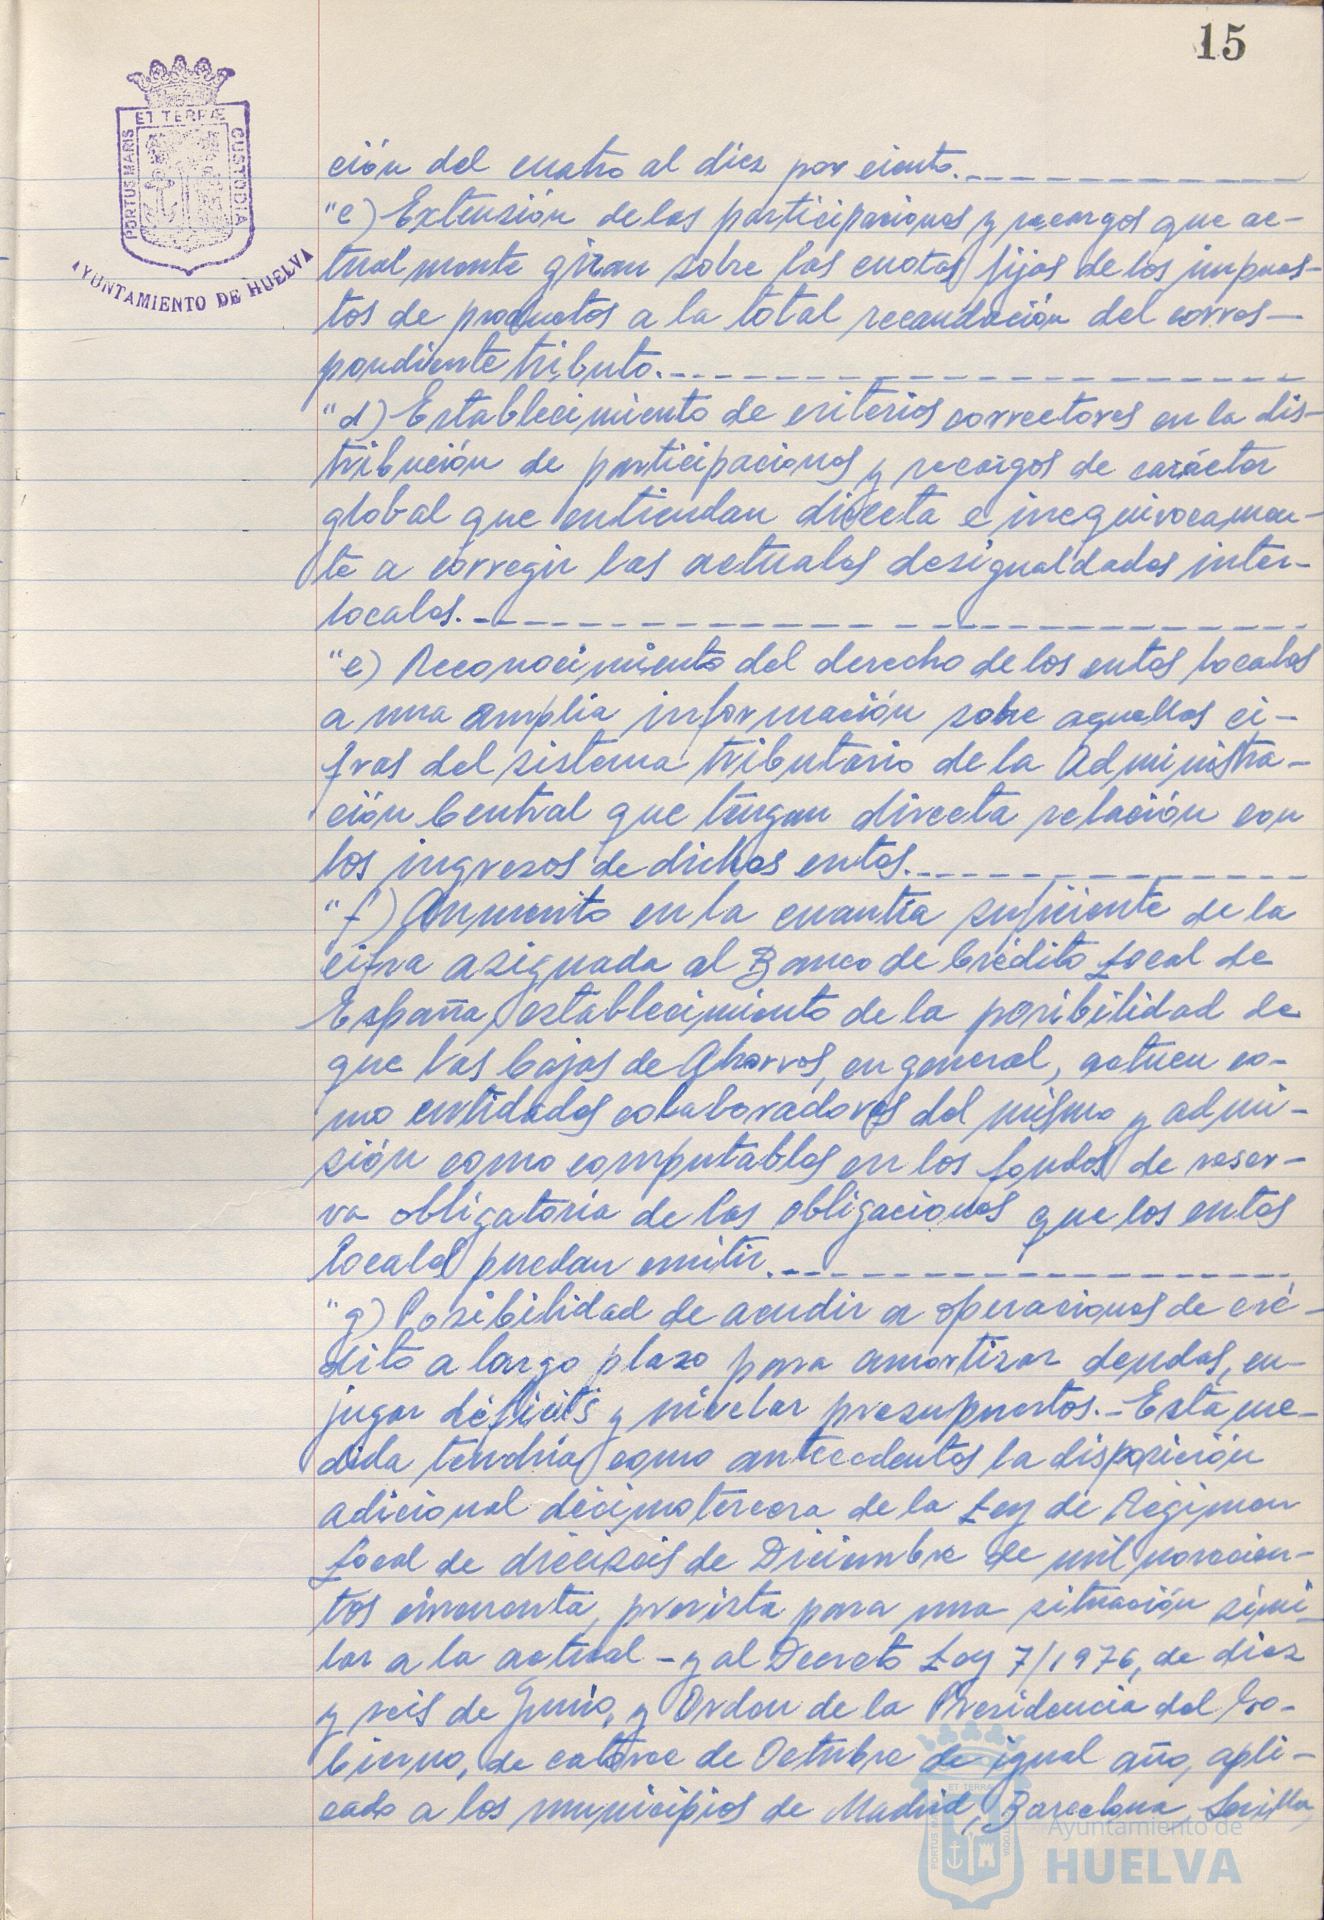 15
ET TERRÆ
PORTUS MARIS
CUSTODIA
AYUNTAMIENTO DE HUELVA
ción del cuatro al diez por ciento.
"c) Extensión de las participaciones y recargos que ac-
tualmente giran sobre las cuotas fijas de los impues-
tos de productos a la total recaudación del corres-
pondiente tributo.
"d) Establecimiento de criterios correctores en la dis-
tribución de participaciones y recargos de carácter
global que entiendan directa e inequívocamen-
te a corregir las actuales desigualdades inter-
locales.
"e) Reconocimiento del derecho de los entes locales
a una amplia información sobre aquellas ci-
fras del sistema tributario de la Administra-
ción Central que tengan directa relación con
los ingresos de dichos entes.
"f) Aumento en la cuantía suficiente de la
cifra asignada al Banco de Crédito Local de
España, establecimiento de la posibilidad de
que las Cajas de Ahorros, en general, actuen co-
mo entidades colaboradoras del mismo y admi-
sión como computables en los fondos de reser-
va obligatoria de las obligaciones que los entes
locales puedan emitir.
"g) Posibilidad de acudir a operaciones de cré-
dito a largo plazo para amortizar deudas, en-
jugar déficits y nivelar presupuestos.- Esta me-
dida tendría como antecedentes la disposición
adicional décimotercera de la Ley de Régimen
Local de dieciseis de Diciembre de mil novecien-
tos cincuenta, prevista para una situación simi-
lar a la actual - y al Decreto Ley 7/1976, de diez
y seis de Junio, y Orden de la Presidencia del Go-
bierno, de catorce de Octubre de igual año, apli-
cado a los municipios de Madrid, Barcelona, Sevilla,
ET TERRÆ
PORTUS MARIS
CUSTODIA
Ayuntamiento de
HUELVA